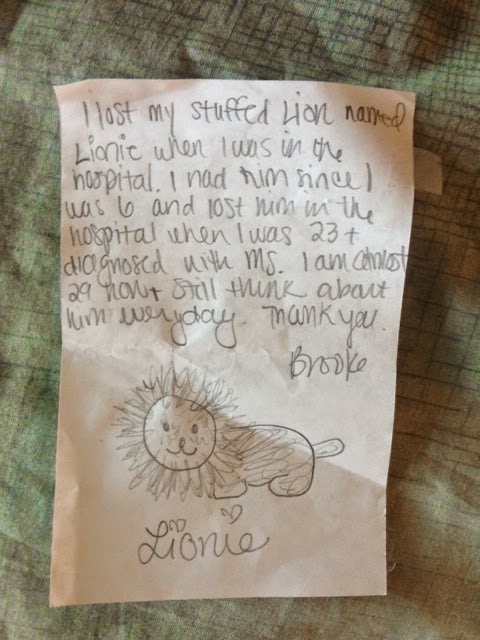 I lost my stuffed Lion named
Lionie when I was in the
hospital. I had him since I
was 6 and lost him in the
hospital when I was 23 +
diagnosed with MS. I am almost
29 now + still think about
him everyday. Thank you.
Brooke
Lionie